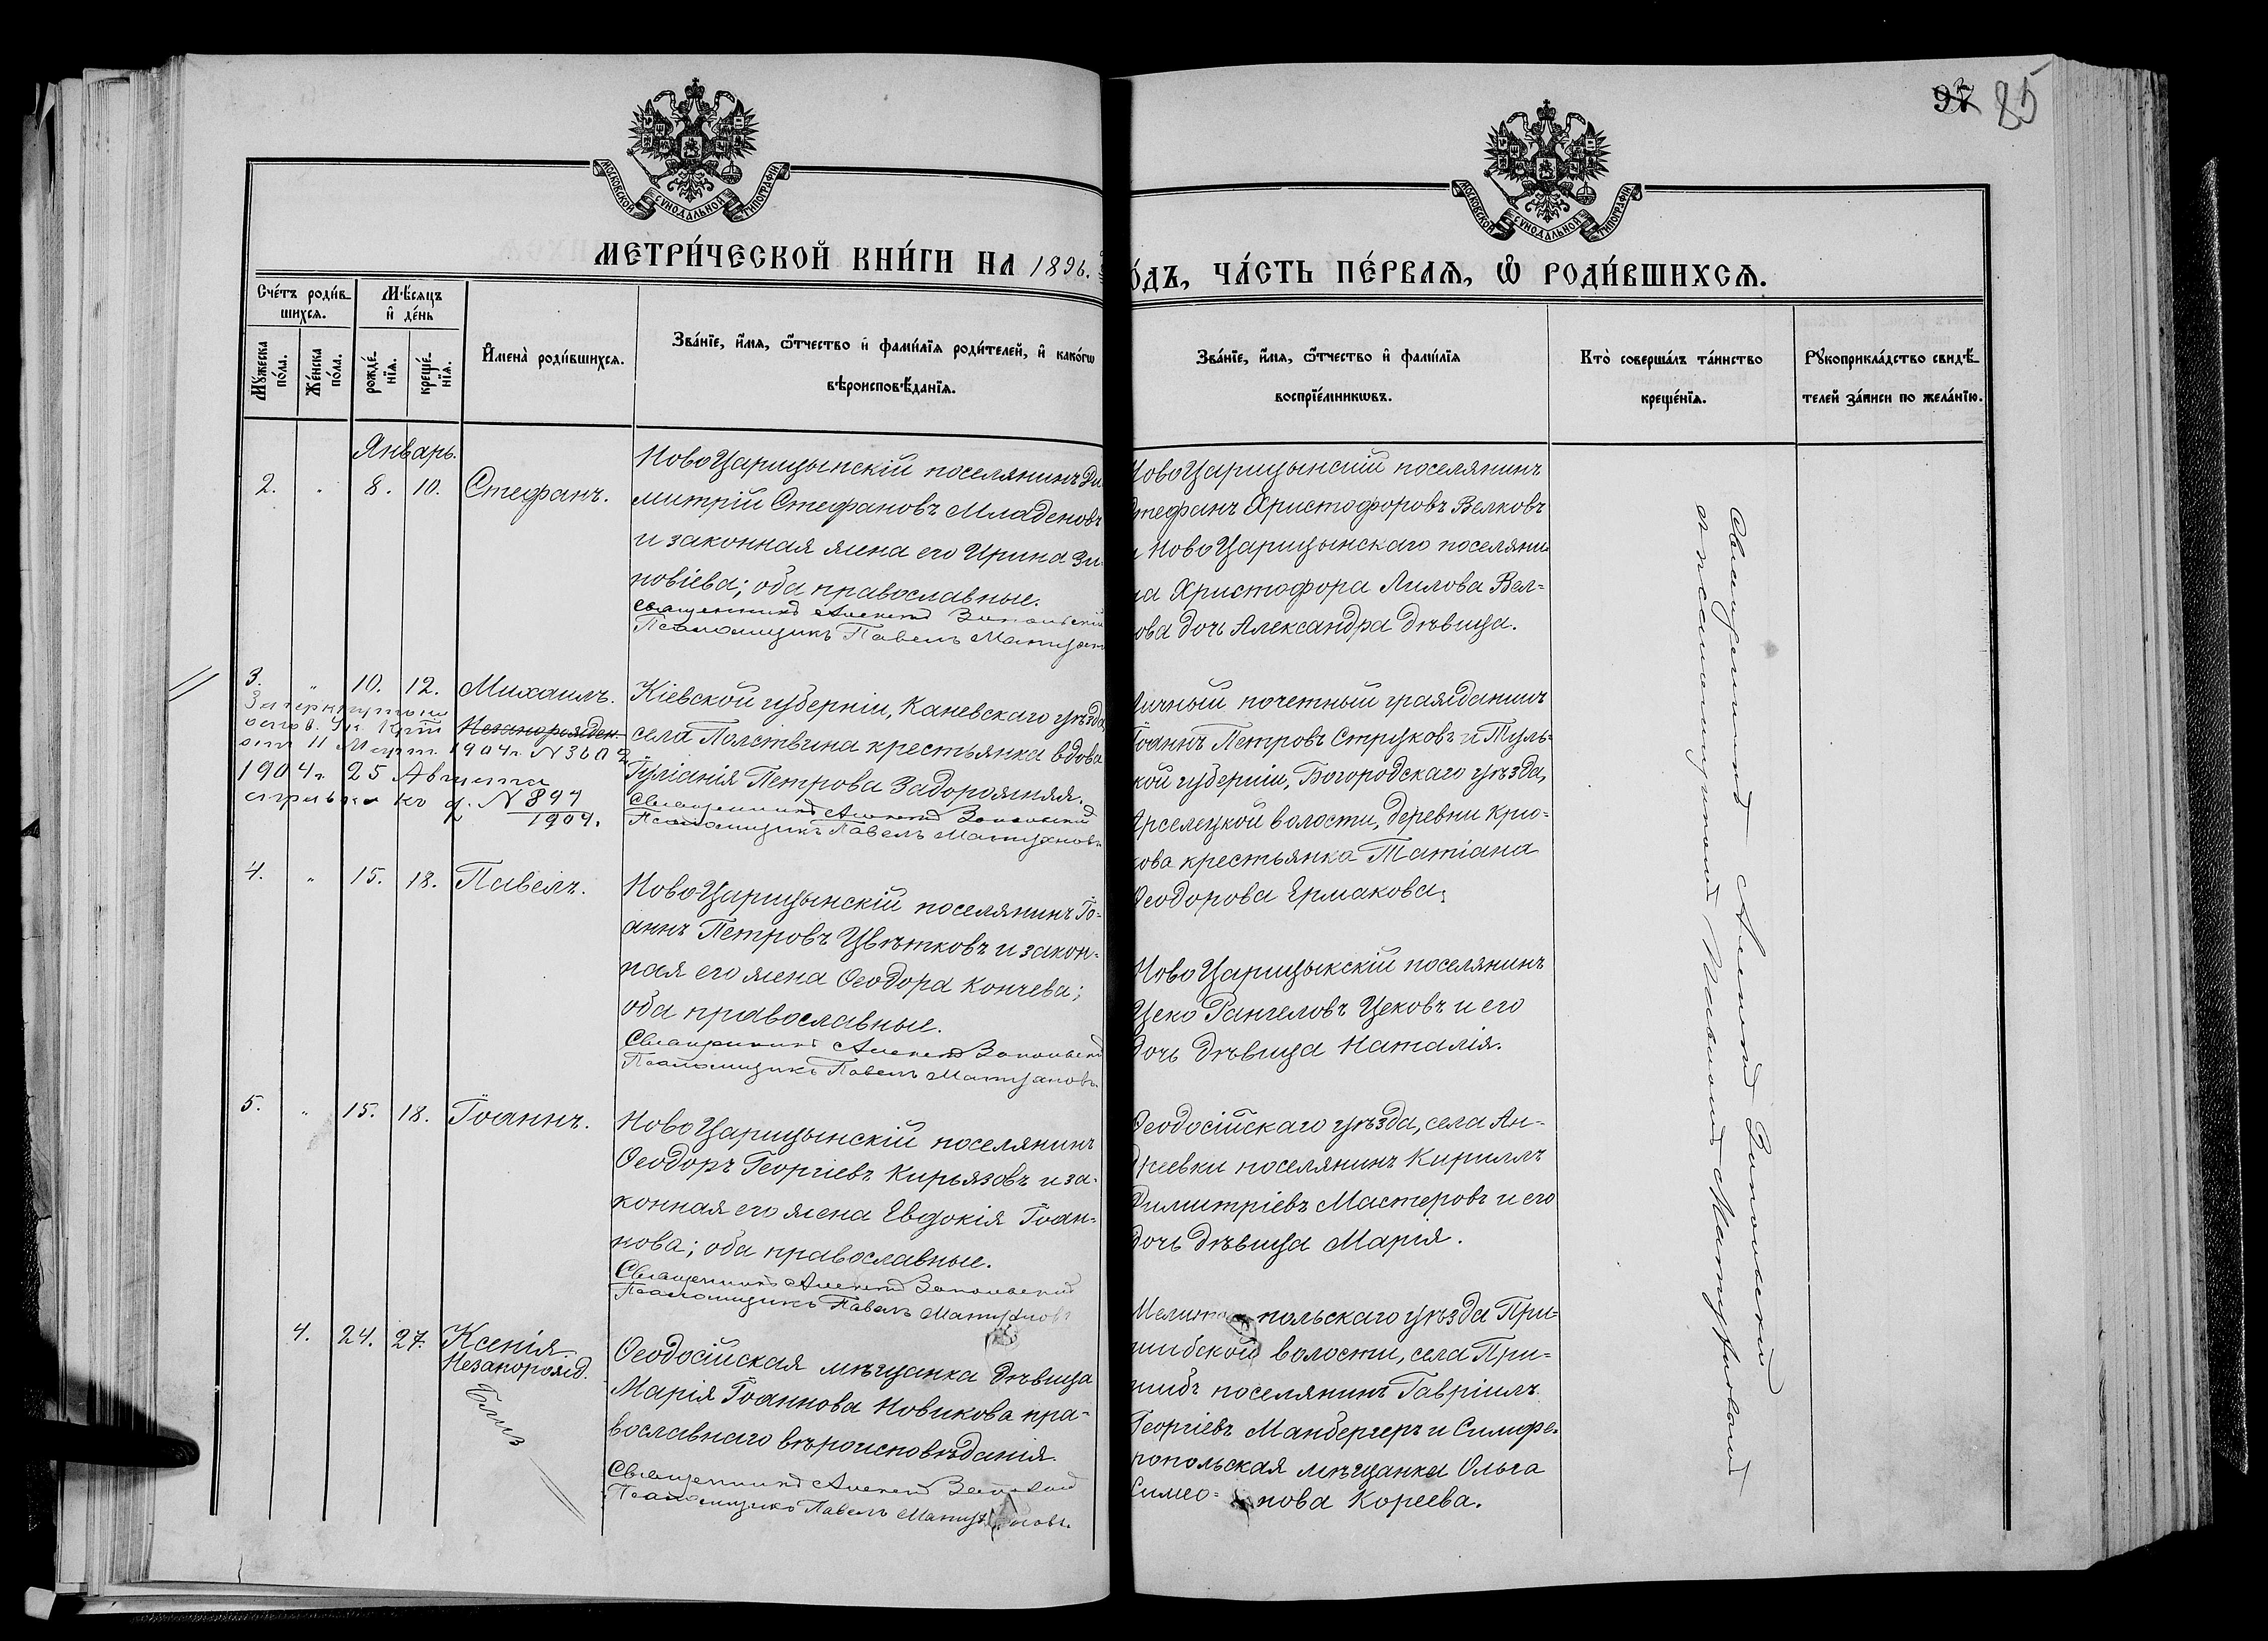 97 85
МОСКОВСКОЙ СѴНОДАЛЬНОЙ ТИПОГРАФІИ
МОСКОВСКОЙ СѴНОДАЛЬНОЙ ТИПОГРАФІИ
МЕТРИ́ЧЕСКОЙ КНИ́ГИ НА 1896.
О́ДЪ, ЧА́СТЬ ПЕ́РВАѦ, Ѡ҆ РОДИ́ВШИХСѦ.
Сче́тъ роди́в-
шихсѧ.
Мѣ́сѧцъ
и҆ де́нь
Мꙋ́жеска
по́ла.
Же́нска
по́ла.
рожде́-
нїѧ.
креще́-
нїѧ.
И҆мена̀ роди́вшихсѧ.
Зва́нїе, и҆́мѧ, ѻ҆́тчество и҆ фами́лїѧ роди́телей, и҆ како́гѡ
вѣроисповѣ́данїѧ.
Зва́нїе, и҆́мѧ, ѻ҆́тчество и҆ фами́лїѧ
воспрїе́мникѡвъ.
Кто̀ соверша́лъ та́инство
креще́нїѧ.
Рꙋкоприкла́дство свидѣ́-
телей за́писи по жела́нїю.
Январь.
2. " 8. 10. Стефанъ.
НовоЦарицынскій поселянинъ Ди
митрій Стефановъ Младеновъ
и законная жена его Ирина Зи-
новіева; оба православные.
Священникъ Алексей Запольскій
Псаломщикъ Павелъ Матуш
НовоЦарицынскій поселянинъ
Стефанъ Христофоровъ Велковъ
и НовоЦарицынскаго поселяни
на Христофора Лилова Вел-
кова дочь Александра дѣвица.
3. " 10. 12. Михаилъ.
Незаконорожден.
Зачеркнутому
основ. Ук. Крым
от 11 Март. 1904 г. N 3602
1904 г. 25 Августа
справка къ д. N 894
1904.
Кіевской губерніи, Каневскаго уѣзда,
села Полствина крестьянка вдова
Іуліанія Петрова Задорожняя.
Священникъ Алексей Запольскій
Псаломщикъ Павелъ
Личный почетный гражданинъ
Іоаннъ Петровъ Струковъ и Туль-
ской губерніи, Богородскаго уѣзда,
Арселецкой волости, деревни Крю-
кова крестьянка Татіана
Ѳеодорова Ермакова.
4. " 15. 18. Павелъ.
НовоЦарицынскій поселянинъ Іо-
аннъ Петровъ Цвѣтковъ и закон-
ная его жена Ѳеодора Кончева;
оба православные.
Священникъ Алексей Запольскій
Псаломщикъ Павелъ
НовоЦарицынскій поселянинъ
Цеко Рангеловъ Цековъ и его
дочь дѣвица Наталія.
5. " 15. 18. Іоаннъ.
НовоЦарицынскій поселянинъ
Ѳеодоръ Георгіевъ Кирьязовъ и за-
конная его жена Евдокія Іоан-
нова; оба православные.
Священникъ Алексей Запольскій
Псаломщикъ Павелъ
Ѳеодосійскаго уѣзда, села Ан-
дреевки поселянинъ Кириллъ
Димитріевъ Мастеровъ и его
дочь дѣвица Марія.
4. 24. 27. Ксенія
Незаконорожд.
Ѳеодосійская мѣщанка дѣвица
Марія Іоаннова Новикова пра-
вославнаго вѣроисповѣданія.
Священникъ Алексей Запольскій
Псаломщикъ Павелъ
Мелитопольскаго уѣзда При-
шибской волости, села При-
шибъ поселянинъ Гавріилъ
Георгіевъ Манбергеръ и Симфе-
ропольская мѣщанка Ольга
Симео-нова Кореева.
Священникъ Алексей Запольскій
и псаломщикъ Павелъ